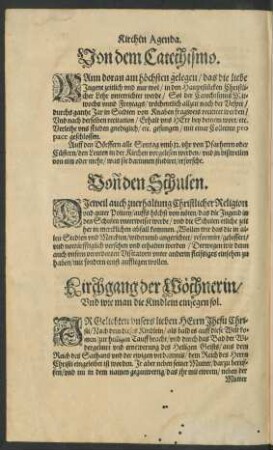 Kirchen Agenda.
Von dem Catechismo.
WAnn daran am höchsten gelegen / das die liebe
Jugent zeitlich und wol / in den Hauptstücken Christli-
cher Lehr unterrichtet werde / Sol der Catechismus
wochs unnd Freytags / wöchentlich allzeit nach der Vesper /
durchs gantze Jar in Stedten von Knaben fragweis recitiert werden /
Und nach derselben recitation / Erhalt uns HErr bey deinem wort etc.
Verleihe uns frieden gnediglich / etc. gesungen / mit einer Collecten pro
pace geschlossen.
Auff den Dörffern alle Sontag umb 12. uhr von Pfarherrn oder
Cüstern / den Leuten in der Kirchen vorgelesen werden / und zu
von inen oder mehr / was sie darinnen studirt / erforsche.
Von den Schulen.
DIeweil auch zu erhaltung Christlicher Religion
und guter Policey / auffs höchst von nöten / das die Jugend in
den Schulen unterweiset werde / und die Schulen etliche zeit
her in mercklichem abfall kommen / Wollen wir das die in al-
len Stedten und / widerumb angerichtet / reformirt / gebessert /
und mit versorget und erhalten werden / Derwegen wir dann
auch unsern verordneten Visitatorn unter anderm fleissiges einsehen zu
haben / mit sonderm ernst aufferlegen wollen.
Kirchgang der Wöchnerin /
Und wie man die Kindlein einsegen sol.
IR Geliebten unsers lieben HErrn Jhesu Chri-
sti / Nach dem dieses Kindlein / als bald es auff diese Welt kom-
men / zur heiligen Tauff bracht / und durch das Bad der Wi-
dergeburt und ernewerung des Heiligen Geists / aus dem
Reich des Sathans und der ewigen verdamnis / dem Reich des Herrn
Christi eingeleibet ist worden. Ir aber neben seiner Mutter / darzu beruf-
fen / und im in dem namen gegenwertig / das ihr mit ewerm / neben der
Mutter